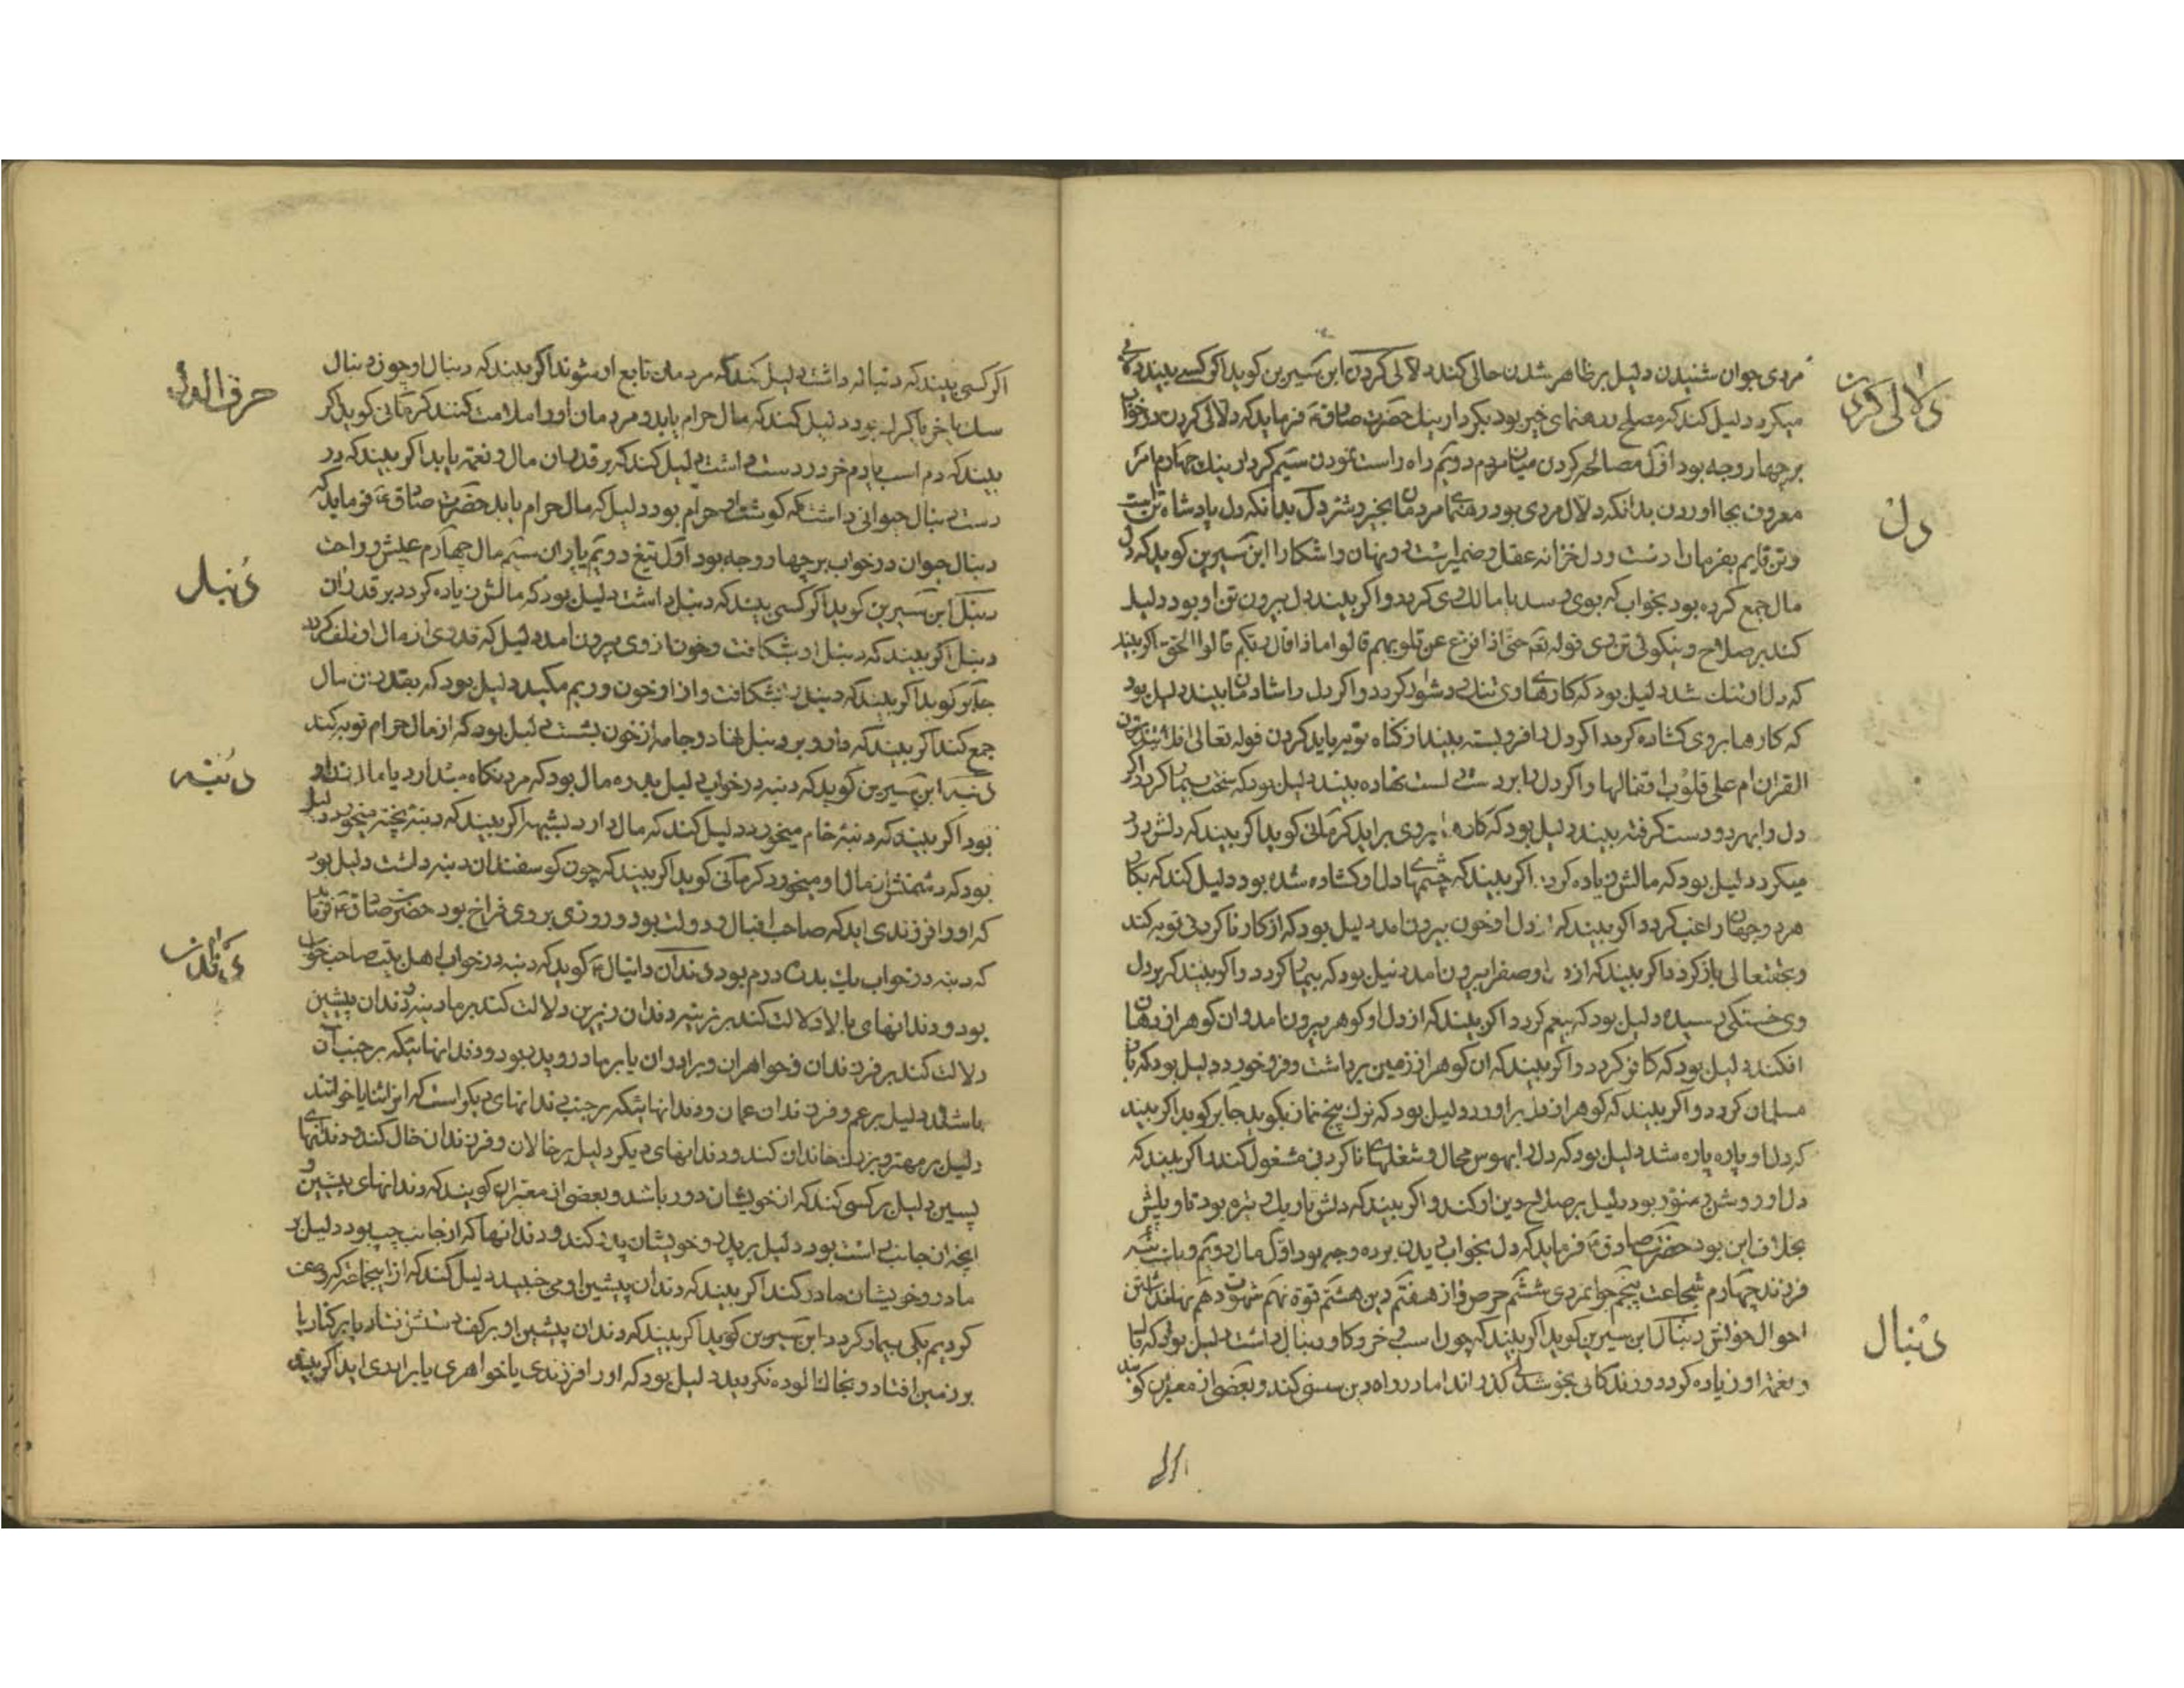 دلالی کردن
مردی جوان شنیدن دلیل بر ظاهر شدن حالی کند دلالی کردن ابن سیرین کوید اکر کسے بیند دلالی
میکرد دلیل کند که مصلح و رهنمای خیر بود بکردار نیك حضرت صادق ع فرماید که دلالی کردن در خواب
بر چهار وجه بود اوّل مصالحه کردن میان مردم دویّم راه راست نمودن سیّم کردار نیك چهارم امر
دل
معروف بجا اوردن بدانکه دلال مردی بود رهنمای مردمان بخیر و شر دل بدانکه دل پادشاه تن است
و تن قایم بفرمان اوست و دل خزانه عقل و ضمیر است و پنهان و اشکارا ابن سیرین کوید که دل
مال جمع کرده بود بخواب که بوی رسد یا مالك وی کردد و اکر بیند دل بیرون تن او بود دلیل
کند بر صلاح و نیکوئی تن وی قوله تع حتّی اذا فزع عن قلوبهم قالوا ماذا قال ربّکم قالوا الحق اکر بیند
که دل او تنك شد دلیل بود که کارهای وی تنك و دشوار کردد و اکر دل را شادمان بیند دلیل بود
که کارها بر وی کشاده کردد اکر دل را فرو بسته بیند از کناه توبه باید کردن قوله تعالی افلا یتدبّرون
القران ام علی قلوب اقفالها و اکر دل را بر دست نهاده بیند دلیل بود که سخت بیمار کردد اکر
دل را بهر دو دست کرفته بیند دلیل بود که کارها بروی براید کرمانی کوید اکر بیند که دلش درد
میکرد دلیل بود که مالش زیاده کردد اکر بیند که چشمهاء دل او کشاده شده بود دلیل کند که بکار
هر دو جهان راغب کردد اکر بیند که از دل او خون بیرون امد دلیل بود که از کار ناکردنی توبه کند
و بحقتعالی باز کردد اکر بیند که از دل او صفرا بیرون امد دلیل بود که بیمار کردد و اکر بیند که بر دل
وی خستکی رسیده دلیل بود که بیغم کردد اکر بیند که از دل او کوهر بیرون امد و ان کوهر از دهان
افکند دلیل بود که کافر کردد و اکر بیند که ان کوهر از زمین برداشت و فرو خورد دلیل بود که باز
مسلمان کردد و اکر بیند که کوهر از دل براورد دلیل بود که ترك پنج نماز بکوید جابر کوید اکر بیند
که دل او پاره پاره شد دلیل بود که دل را بهوس محال و شغلهای ناکردنی مشغول کند اکر بیند که
دل او روشن و منوّر بود دلیل بر صلاح دین او کند و اکر بیند که دلش تاریك و تیره بود تاویلش
بخلاف این بود حضرت صادق ع فرماید که دل بخواب دیدن بر ده وجه بود اوّل مال دویّم ریاست سیّم
فرزند چهارم شجاعت پنجم جوانمردی ششم حرص و از هفتم دین هشتم قوّة نهم شهوت دهم پنهان داشتن
دنبال
احوال خویش دنبال ابن سیرین کوید اکر بیند که چون اسب و خر و کاو دنبال داشت دلیل بود که مال
و نعمت او زیاده کردد و زندکانی بخوشدلی کذراند اما در راه دین سستی کند و بعضی از معبّران کویند
حرف الدال
اکر کسی بیند که دنباله داشت دلیل کند که مردمان تابع او شوند اکر بیند که دنبال او چون دنبال
سك یا خر یا کرك بود دلیل کند که مال حرام یابد و مردمان او را ملامت کنند کرمانی کوید اکر
بیند که دم اسب یا دم خر در دست داشت دلیل کند که بر قدر ان مال و نعمت یابد اکر بیند که در
دست دنبال حیوانی داشت که کوشت او حرام بود دلیل که مال حرام یابد حضرت صادق ع فرماید که
دنبال حیوان در خواب بر چهار وجه بود اوّل تیغ دویّم یاران سیّم مال چهارم عیش و راحت
دنبل
دنبل ابن سیرین کوید اکر کسی بیند که دنبل داشت دلیل بود که مالش زیاده کردد بر قدر ان
دنبل اکر بیند که دنبل او بشکافت و خون از وی بیرون امد دلیل که قدری از مال او تلف کردد
جابر کوید اکر بیند که دنبل بشکافت و از او خون و ریم مکید دلیل بود که بقدر ان مال
جمع کند اکر بیند که دارو بر دنبل نهاد و جامه از خون بشست دلیل بود که از مال حرام توبه کند
دنبه
دنبه ابن سیرین کوید که دنبه در خواب دلیل بود
بود اکر بیند که دنبۀ خام میخورد دلیل کند که مال دارد بشبهه اکر بیند که دنبۀ پخته میخورد دلیل
بود که دشمنش از مال او میخورد کرمانی کوید اکر بیند که چون کوسفندان دنبه داشت دلیل بود
که او را فرزندی اید که صاحب اقبال و دولت بود و روزی بر وی فراخ بود حضرت صادق ع فرماید
دندان
که دنبه در خواب یك بدره درم بود دندان دانیال ع کوید که دنبه در خواب اهل بیت صاحب خواب
بود و دندانهای بالا دلالت کند بر نرینه و دندان زیرین دلالت کند بر مادینه و دندان پیشین
دلالت کند بر فرزندان و خواهران و برادران یا بر مادر و پدر بود و دندانهائیکه بر جنب ان
باشند دلیل بر عم و فرزندان عمان و دندانهائیکه بر جنب دندانهای دیکر است که انرا ثنایا خوانند
دلیل بر مهتر و بزرك خاندان کند و دندانهای دیکر دلیل بر خالان و فرزندان خال کند و دندانهای
پسین دلیل بر کسی کند که از خویشان دور باشد و بعضی از معبّران کویند که دندانهای پیشین و
انچه از جانب راست بود دلیل بر پدر و خویشان پدر کند و دندانها که از جانب چپ بود دلیل بر
مادر و خویشان مادر کند اکر بیند که دندان پیشین او می جنبید دلیل کند که از اینجماعت که وصف
کردیم یکی بیمار کردد ابن سیرین کوید اکر بیند که دندان پیشین او بر کف دستش افتاد یا بر کنار یا
بر زمین افتاد و بخاك الوده نکردید دلیل بود که او را فرزندی یا خواهری یا برادری اید اکر بیند